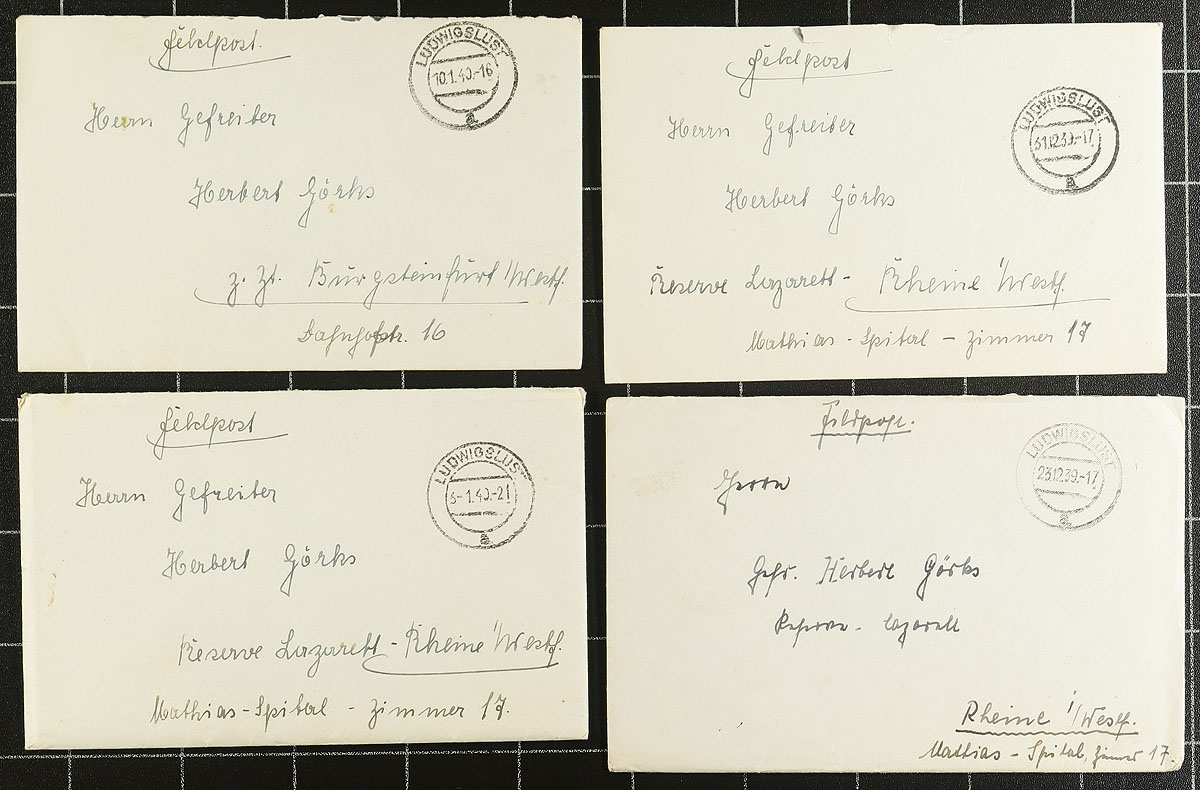 Feldpost.
LUDWIGSLUST
10.1.40.-16
a
Herrn Gefreiter
Herbert Görks
z. Zt. Burgsteinfurt i/Westf.
Bahnhofstr. 16
Feldpost
LUDWIGSLUST
31.12.39.-17
a
Herrn Gefreiter
Herbert Görks
Reserve Lazarett - Rheine i/Westf.
Mathias - Spital - Zimmer 17
Feldpost
LUDWIGSLUST
-1.40.-21
a
Herrn Gefreiter
Herbert Görks
Reserve Lazarett - Rheine i/Westf.
Mathias - Spital - Zimmer 17.
Feldpost.
LUDWIGSLUST
23.12.39.-17
a
Herrn
Gefr. Herbert Görks
Reserve - Lazarett
Rheine i/Westf.
Mathias - Spital, Zimmer 17.